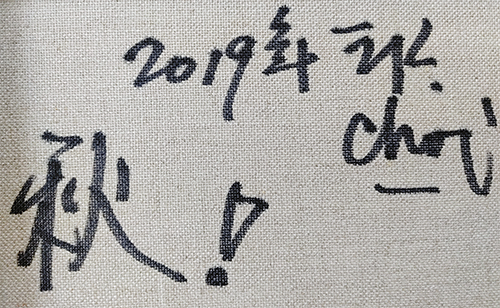 2019年
Choi
秋!